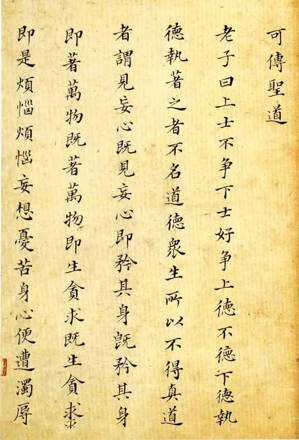 可傳聖道
老子曰上士不争下士好争上德不德下德執
德執著之者不名道德衆生所以不得真道
者謂見妄心既見妄心即矜其身既矜其身
即著萬物既著萬物即生貪求既生貪求
即是煩惱煩惱妄想憂苦身心便遭濁辱